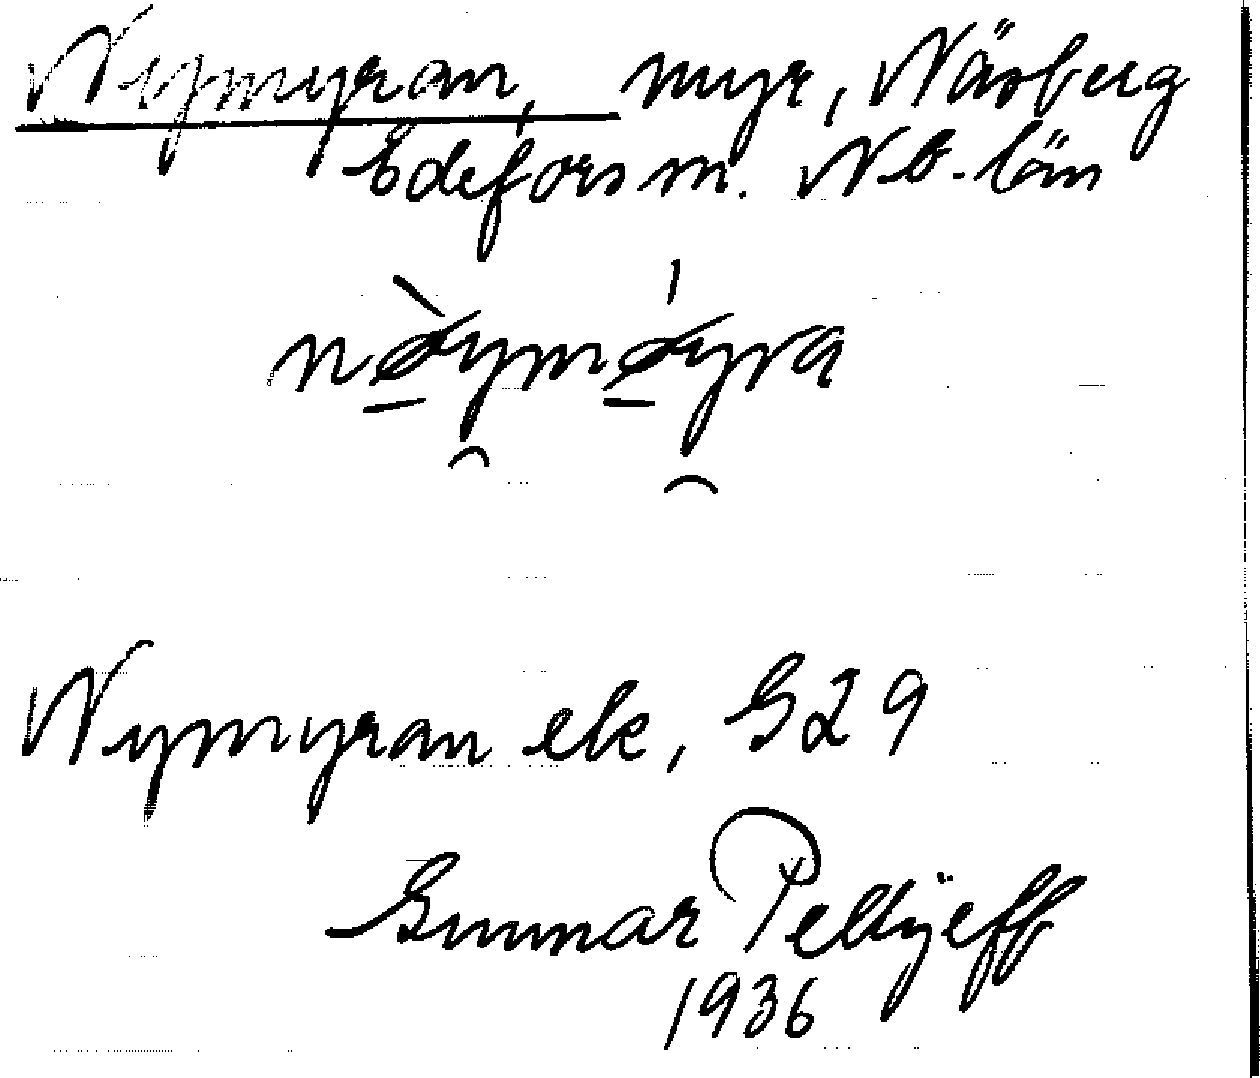 Nymyran, myr, Näsberg
Edefors sn. Nb. län
nø̀ymǿyra
Nymyran ek, G29
Gunnar Pellijeff
1936